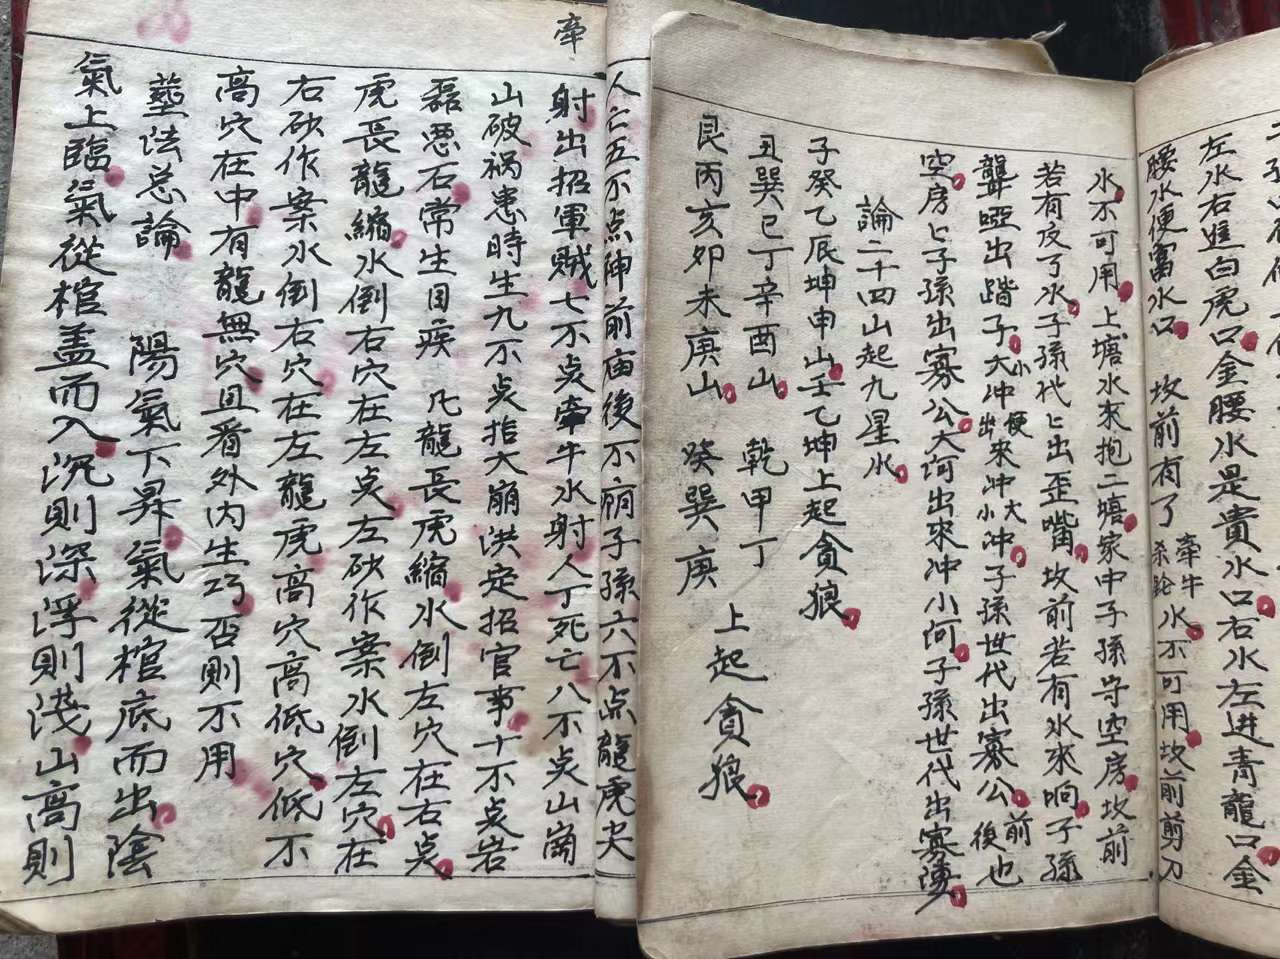 左水右進白虎口金腰水是貴水口右水左进青龍口金
腰水便富水口 坟前有了牵牛杀轮水不可用坟前剪刀
水不可用上塘水來抱二塘家中子孫守空房坟前
若有反了水子孫代匕出歪嘴坟前若有水來响子孫
聾啞出踏子大小冲出便來冲大小冲子孫世代出寡公前後也
空房匕子孫出寡公大河出來冲小河子孫世代出寡
論二十四山起九星水
子癸乙辰坤申山壬乙坤上起貪狼
丑巽巳丁辛酉山 乾甲丁
艮丙亥卯未庚山 癸巽庚 上起貪狼
牵
人亡五不点神前庙後不 子孫六不点龍虎尖
射出招軍賊七不点牵牛水射人丁死亡八不点山崗
山破祸患時生九不点 大崩洪定招官事十不点岩
磊恶石常生目疾 凡龍長虎縮水倒左穴在右点
虎長龍縮水倒右穴在左点左砂作案水倒左穴在
右砂作案水倒右穴在左龍虎高穴高低穴低不
高穴在中有龍無穴且看外内生巧否則不用
塟法总論 陽氣下昇氣從棺底而出陰
氣上臨氣從棺盖而入沉則深浮則淺山高則